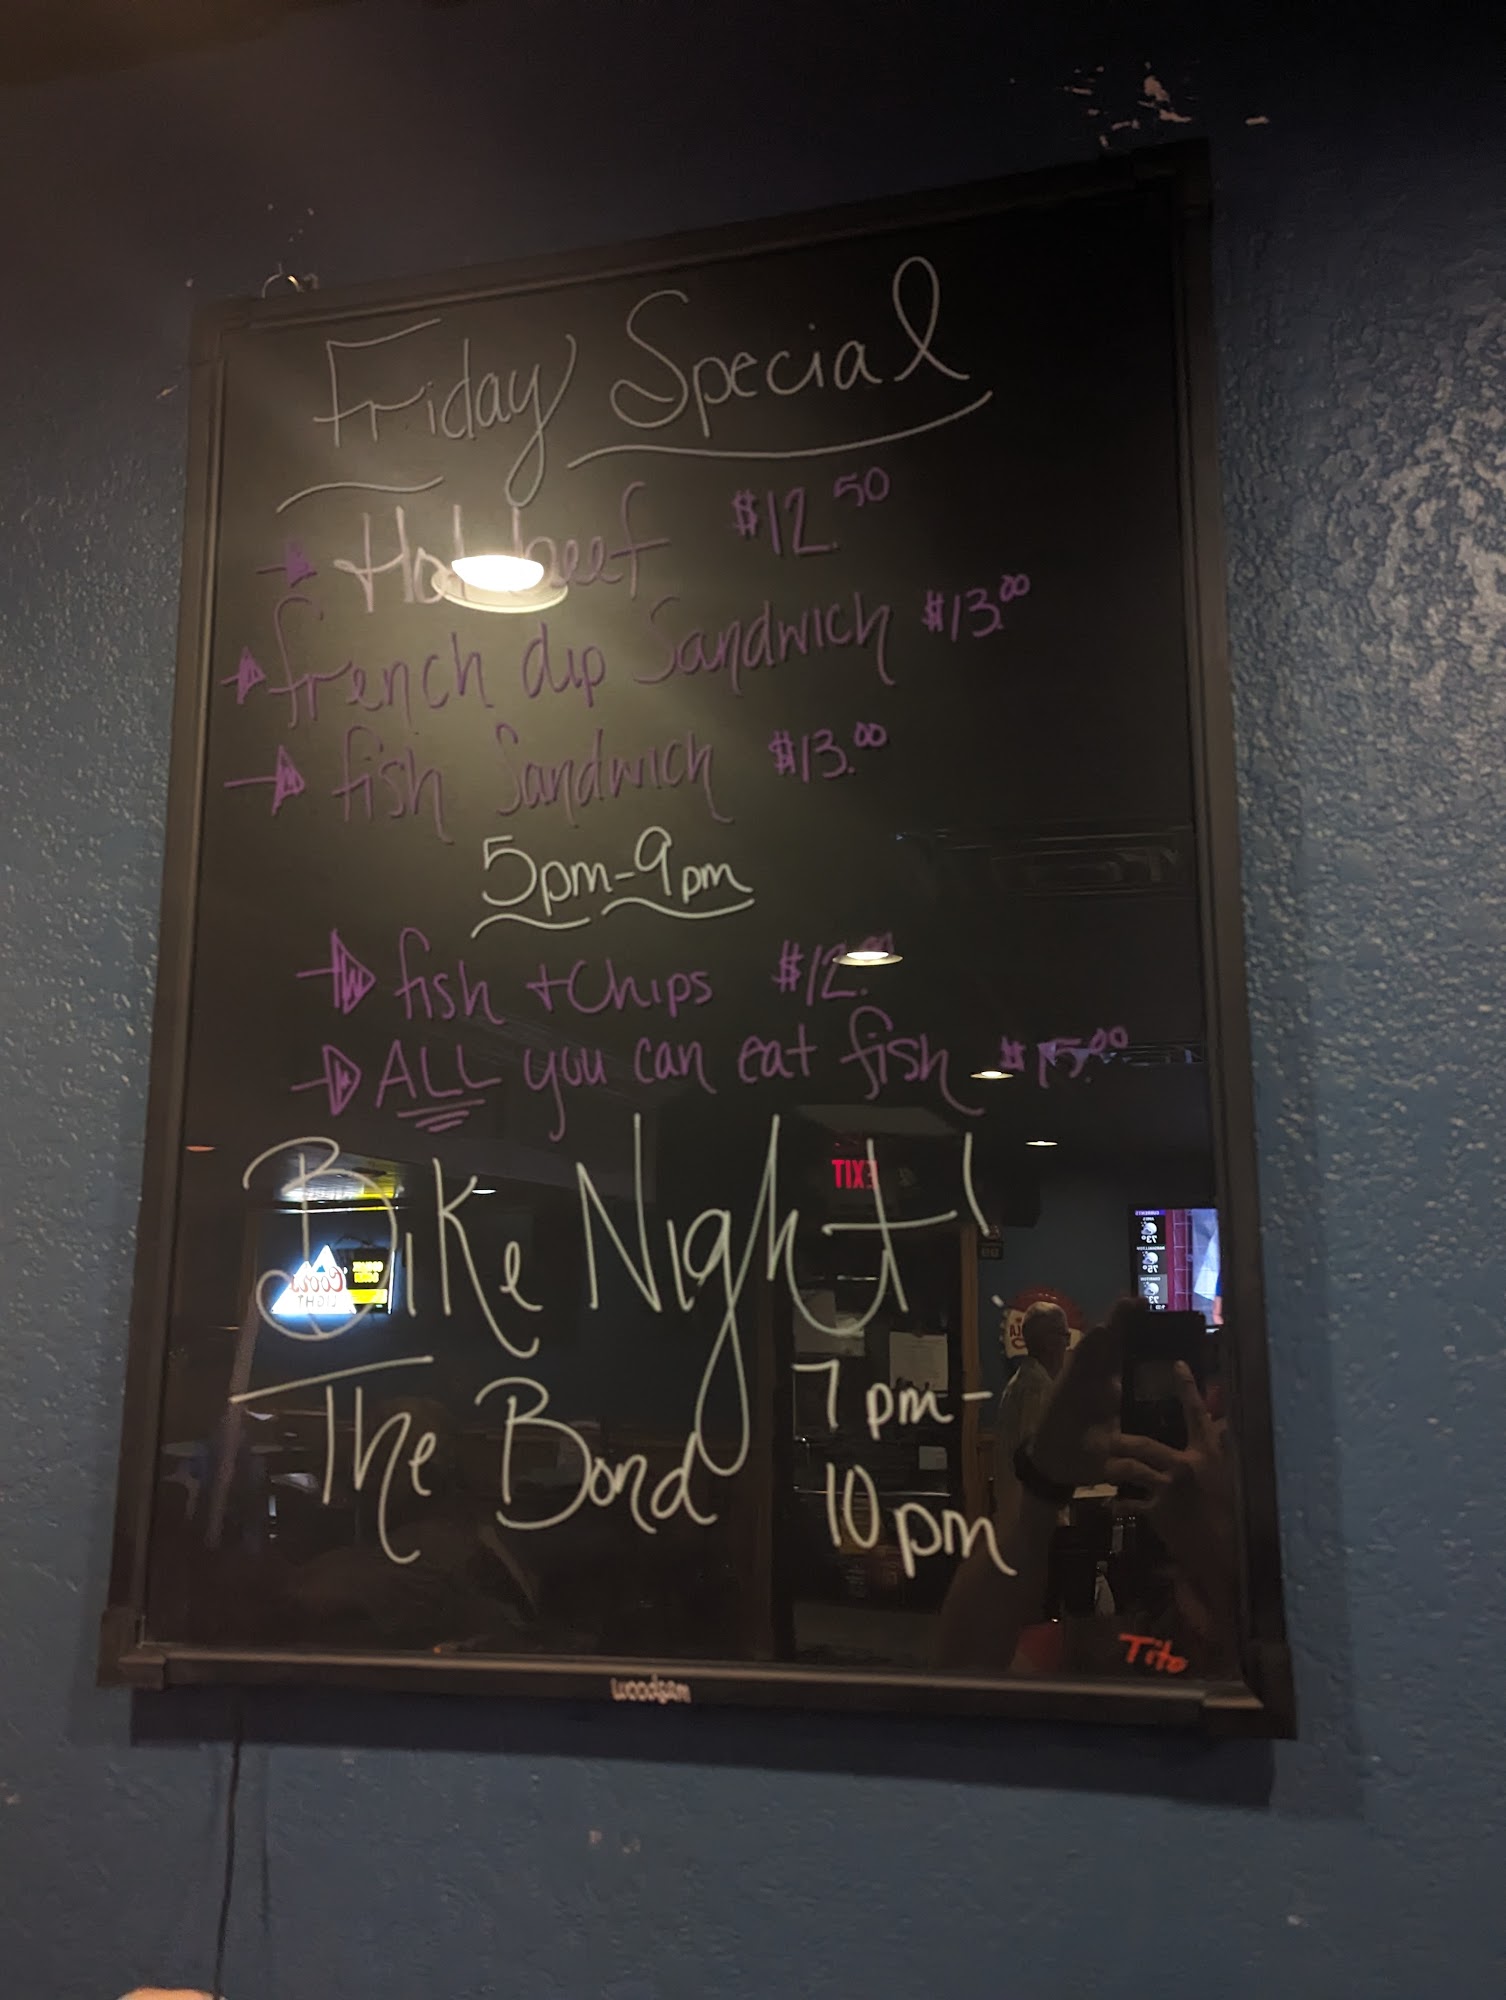 Friday Special
Hot beef $12.50
french dip Sandwich $13.00
fish Sandwich $13.00
5pm-9pm
fish + Chips $12.00
ALL you can eat fish $15.00
Bike Night!
The Bond 7pm-
10pm
EXIT
Coors
LIGHT
73°
75°
73
Tito
woodsam